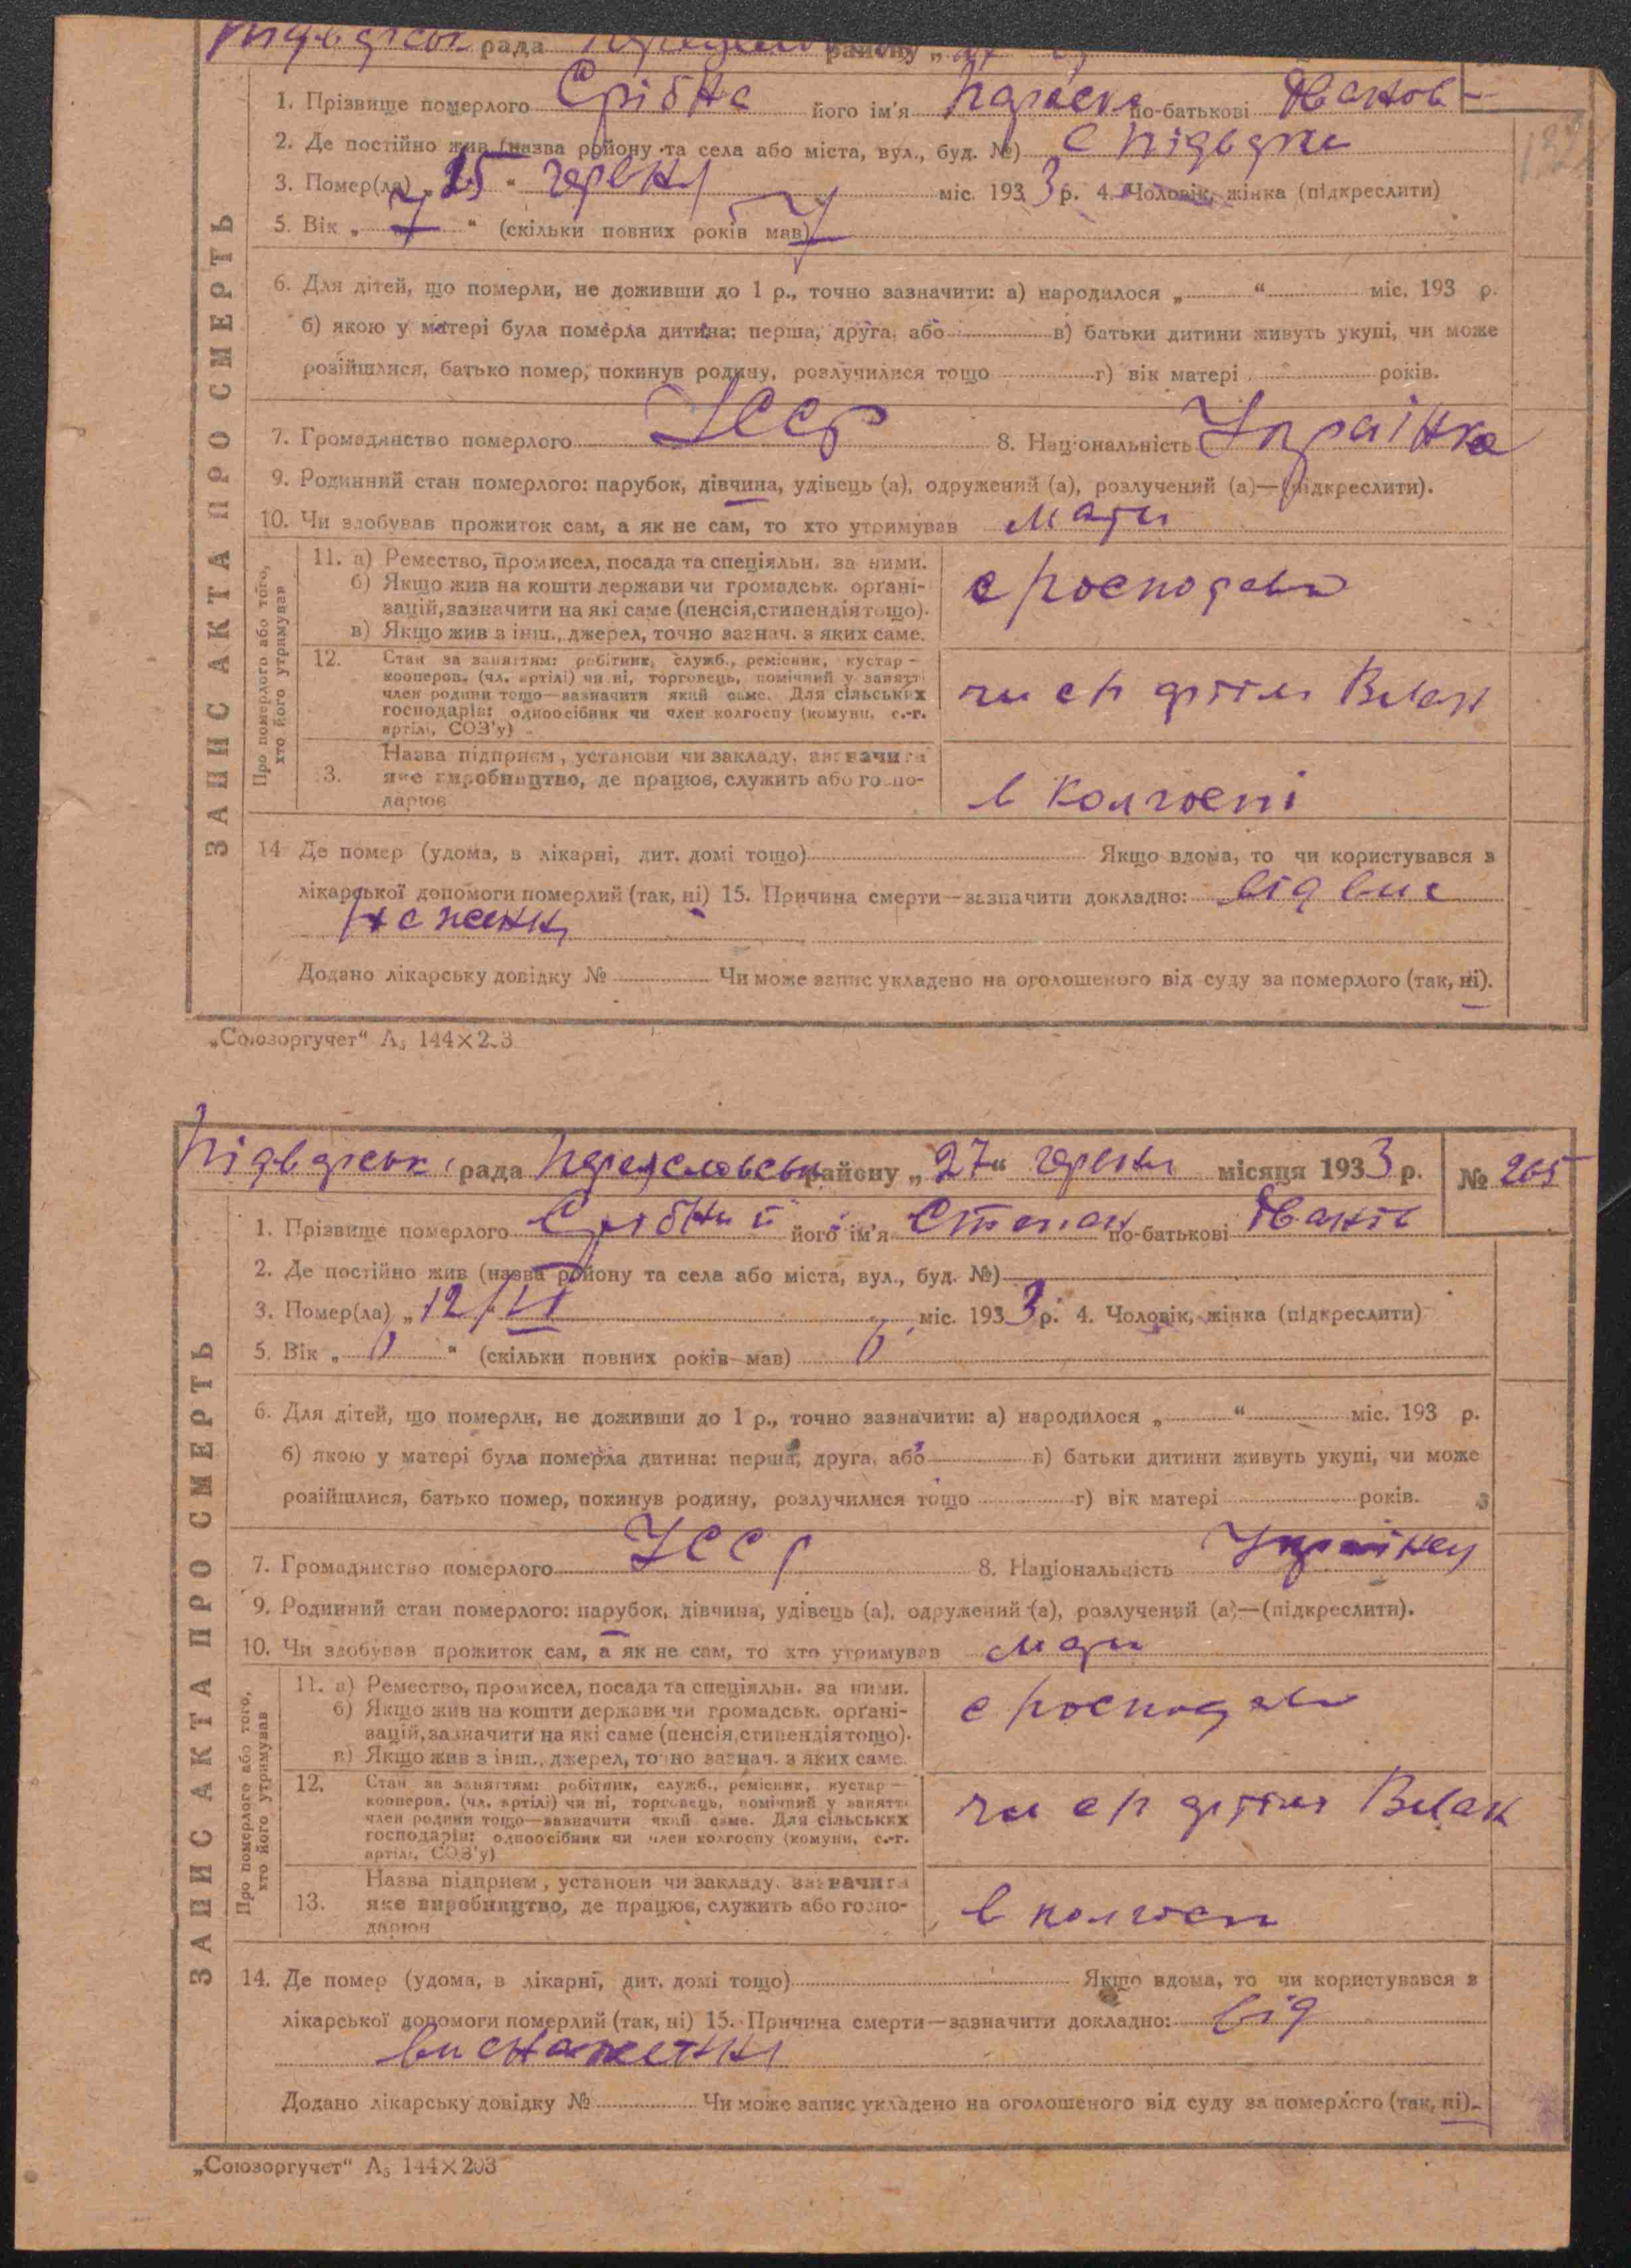 рада району „
1. Прізвище померлого Срібна його ім'я Параска по-батькові Іванов-
2. Де постійно жив (назва району та села або міста, вул., буд. №) с Підвярки
3. Помер(ла) „15“ червня міс. 1933 р. 4. Чоловік, жінка (підкреслити)
5. Вік „7“ (скільки повних років мав) 7
6. Для дітей, що померли, не доживши до 1 р., точно зазначити: а) народилося „ “ міс. 193 р.
б) якою у матері була померла дитина: перша, друга, або в) батьки дитини живуть укупі, чи може
розійшлися, батько помер, покинув родину, розлучилися тощо г) вік матері років.
7. Громадянство померлого УССР 8. Національність Українка
9. Родинний стан померлого: парубок, дівчина, удівець (а), одружений (а), розлучений (а)—(підкреслити).
10. Чи здобував прожиток сам, а як не сам, то хто утримував мати
ЗАПИС АКТА ПРО СМЕРТЬ
Про померлого або того, хто його утримував
11. а) Ремество, промисел, посада та спеціяльн. за ними.
б) Якщо жив на кошти держави чи громадськ. орґані-
зацій, зазначити на які саме (пенсія, стипендія тощо).
в) Якщо жив з інш., джерел, точно зазнач. з яких саме.
12. Стан за заняттям: робітник, служб., ремісник, кустар –
кооперов. (чл. артілі) чи ні, торговець, помічний у занятті
член родини тощо—зазначити який саме. Для сільських
господарів: одноосібник чи член колгоспу (комуни, с.-г.
артілі, СОЗ'у)
13. Назва підприєм, установи чи закладу, зазначити
яке виробництво, де працює, служить або госпо-
дарює
в колгоспі
14 Де помер (удома, в лікарні, дит. домі тощо) Якщо вдома, то чи користувався з
лікарської допомоги померлий (так, ні) 15. Причина смерти—зазначити докладно: від вис
наження
Додано лікарську довідку № Чи може запис укладено на оголошеного від суду за померлого (так, ні).
„Союзоргучет“ А₅ 144×203
рада району „27“ червня місяця 1933 р. № 265
1. Прізвище померлого Срібний його ім'я Степан по-батькові Іванів
2. Де постійно жив (назва району та села або міста, вул., буд. №)
3. Помер(ла) „12/VI міс. 1933 р. 4. Чоловік, жінка (підкреслити)
5. Вік „ “ (скільки повних років мав)
6. Для дітей, що померли, не доживши до 1 р., точно зазначити: а) народилося „ “ міс. 193 р.
б) якою у матері була померла дитина: перша, друга, або в) батьки дитини живуть укупі, чи може
розійшлися, батько помер, покинув родину, розлучилися тощо г) вік матері років.
7. Громадянство померлого УССР 8. Національність
9. Родинний стан померлого: парубок, дівчина, удівець (а), одружений (а), розлучений (а)—(підкреслити).
10. Чи здобував прожиток сам, а як не сам, то хто утримував мати
ЗАПИС АКТА ПРО СМЕРТЬ
Про померлого або того, хто його утримував
11. а) Ремество, промисел, посада та спеціяльн. за ними.
б) Якщо жив на кошти держави чи громадськ. орґані-
зацій, зазначити на які саме (пенсія, стипендія тощо).
в) Якщо жив з інш., джерел, точно зазнач. з яких саме.
12. Стан за заняттям: робітник, служб., ремісник, кустар –
кооперов. (чл. артілі) чи ні, торговець, помічний у занятті
член родини тощо—зазначити який саме. Для сільських
господарів: одноосібник чи член колгоспу (комуни, с.-г.
артілі, СОЗ'у)
13. Назва підприєм, установи чи закладу, зазначити
яке виробництво, де працює, служить або госпо-
дарює
в колгосп
14. Де помер (удома, в лікарні, дит. домі тощо) Якщо вдома, то чи користувався з
лікарської допомоги померлий (так, ні) 15. Причина смерти—зазначити докладно: від
виснаження
Додано лікарську довідку № Чи може запис укладено на оголошеного від суду за померлого (так, ні).
„Союзоргучет“ А₅ 144×203